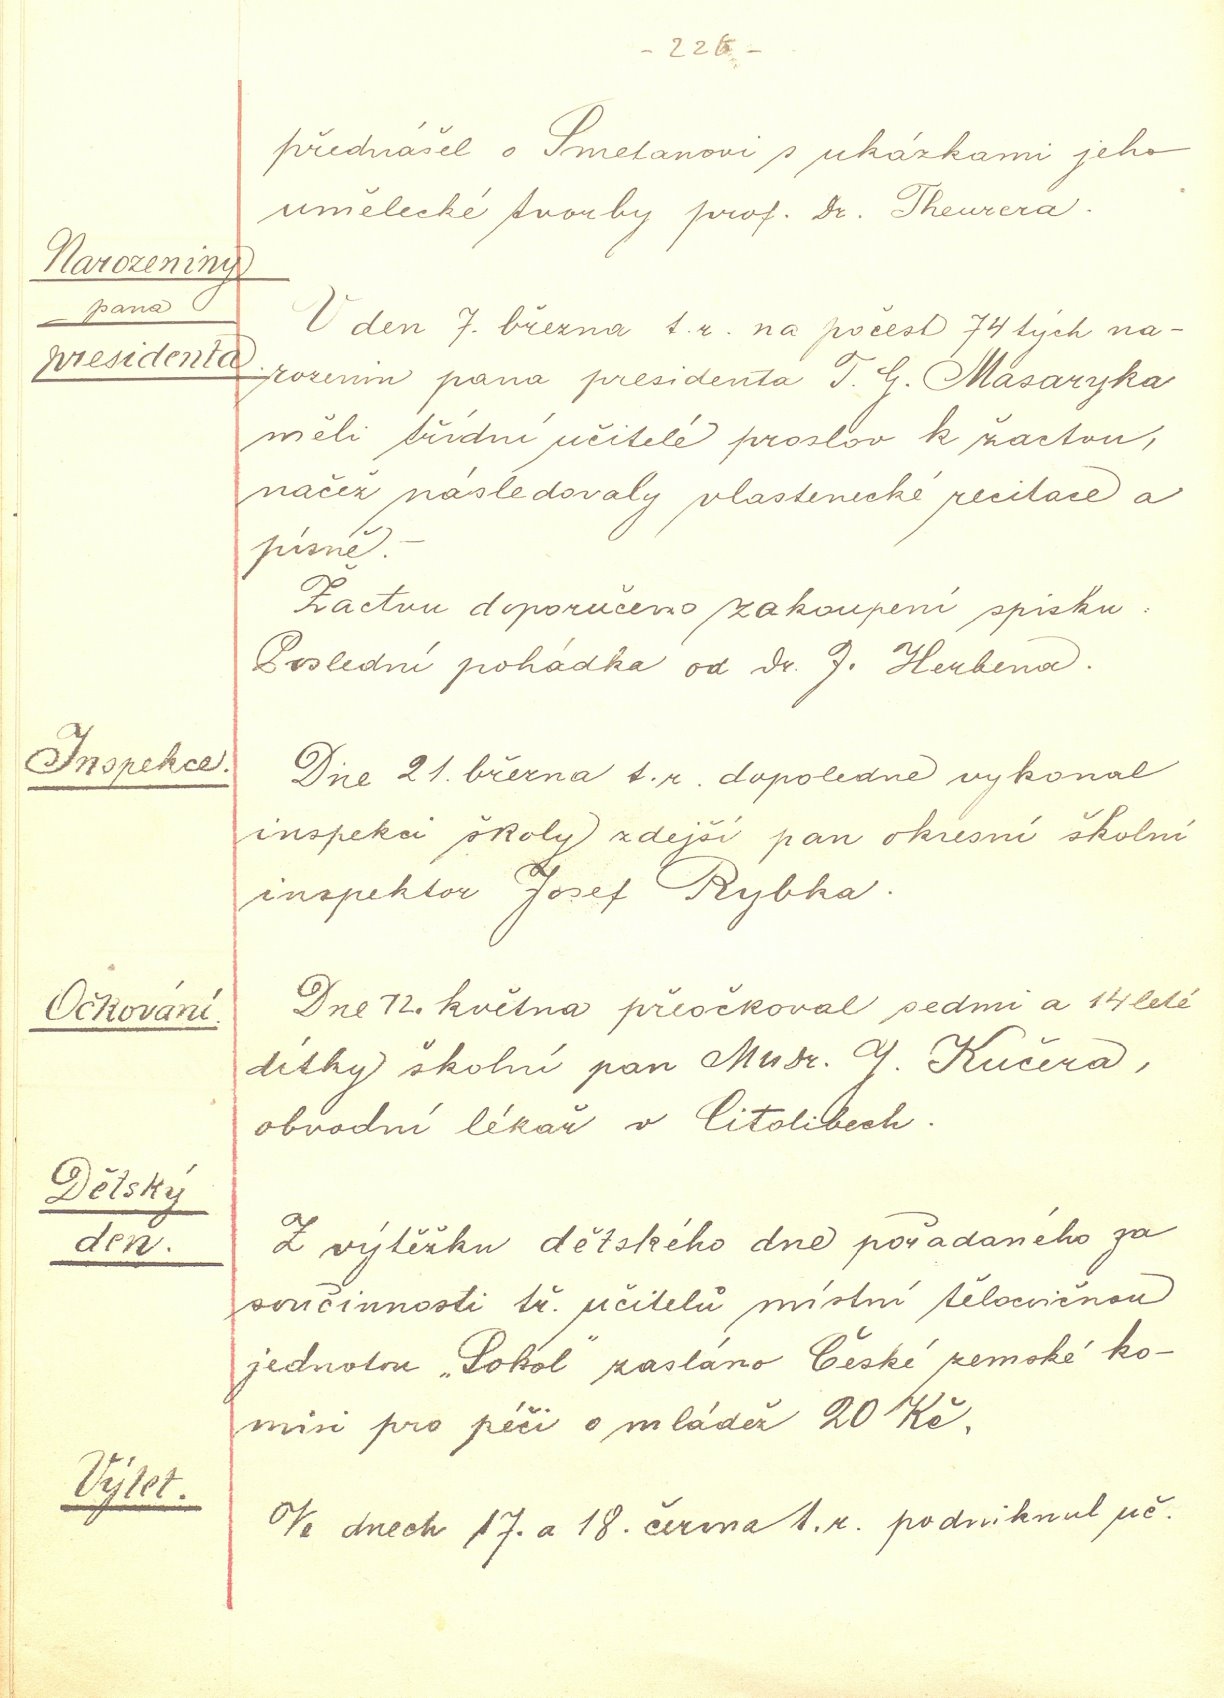 - 226 -
přednášel o Smetanovi s ukázkami jeho
umělecké tvorby prof. Dr. Theurera.
Narozeniny
pana
presidenta
V den 7. března t.r. na počest 74tých na-
rozenin pana presidenta T. G. Masaryka
měli třídní učitelé proslov k žactvu,
načež následovaly vlastenecké recitace a
písně.-
Žactvu doporučeno zakoupení spisku:
Poslední pohádka od Dr. J. Herbena.
Inspekce.
Dne 21. března t.r. dopoledne vykonal
inspekci školy zdejší pan okresní školní
inspektor Josef Rybka.
Očkování.
Dne 12. května přeočkoval sedmi a 14leté
dítky školní pan MuDr. J. Kučera,
obvodní lékař v Citolibech.
Dětský
den.
Z výtěžku dětského dne pořadaného za
součinnosti tř. učitelů místní tělocvičnou
jednotou „Sokol" zasláno České zemské ko-
misi pro péči o mládež 20 Kč.
Výlet.
Ve dnech 17. a 18. června t.r. podniknul uč.